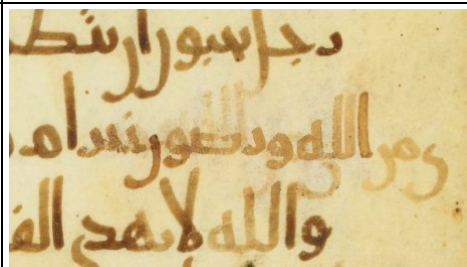 رجل يحبون ان يتط
ى من الله ورضون خير ام م
والله لا يهدى الق